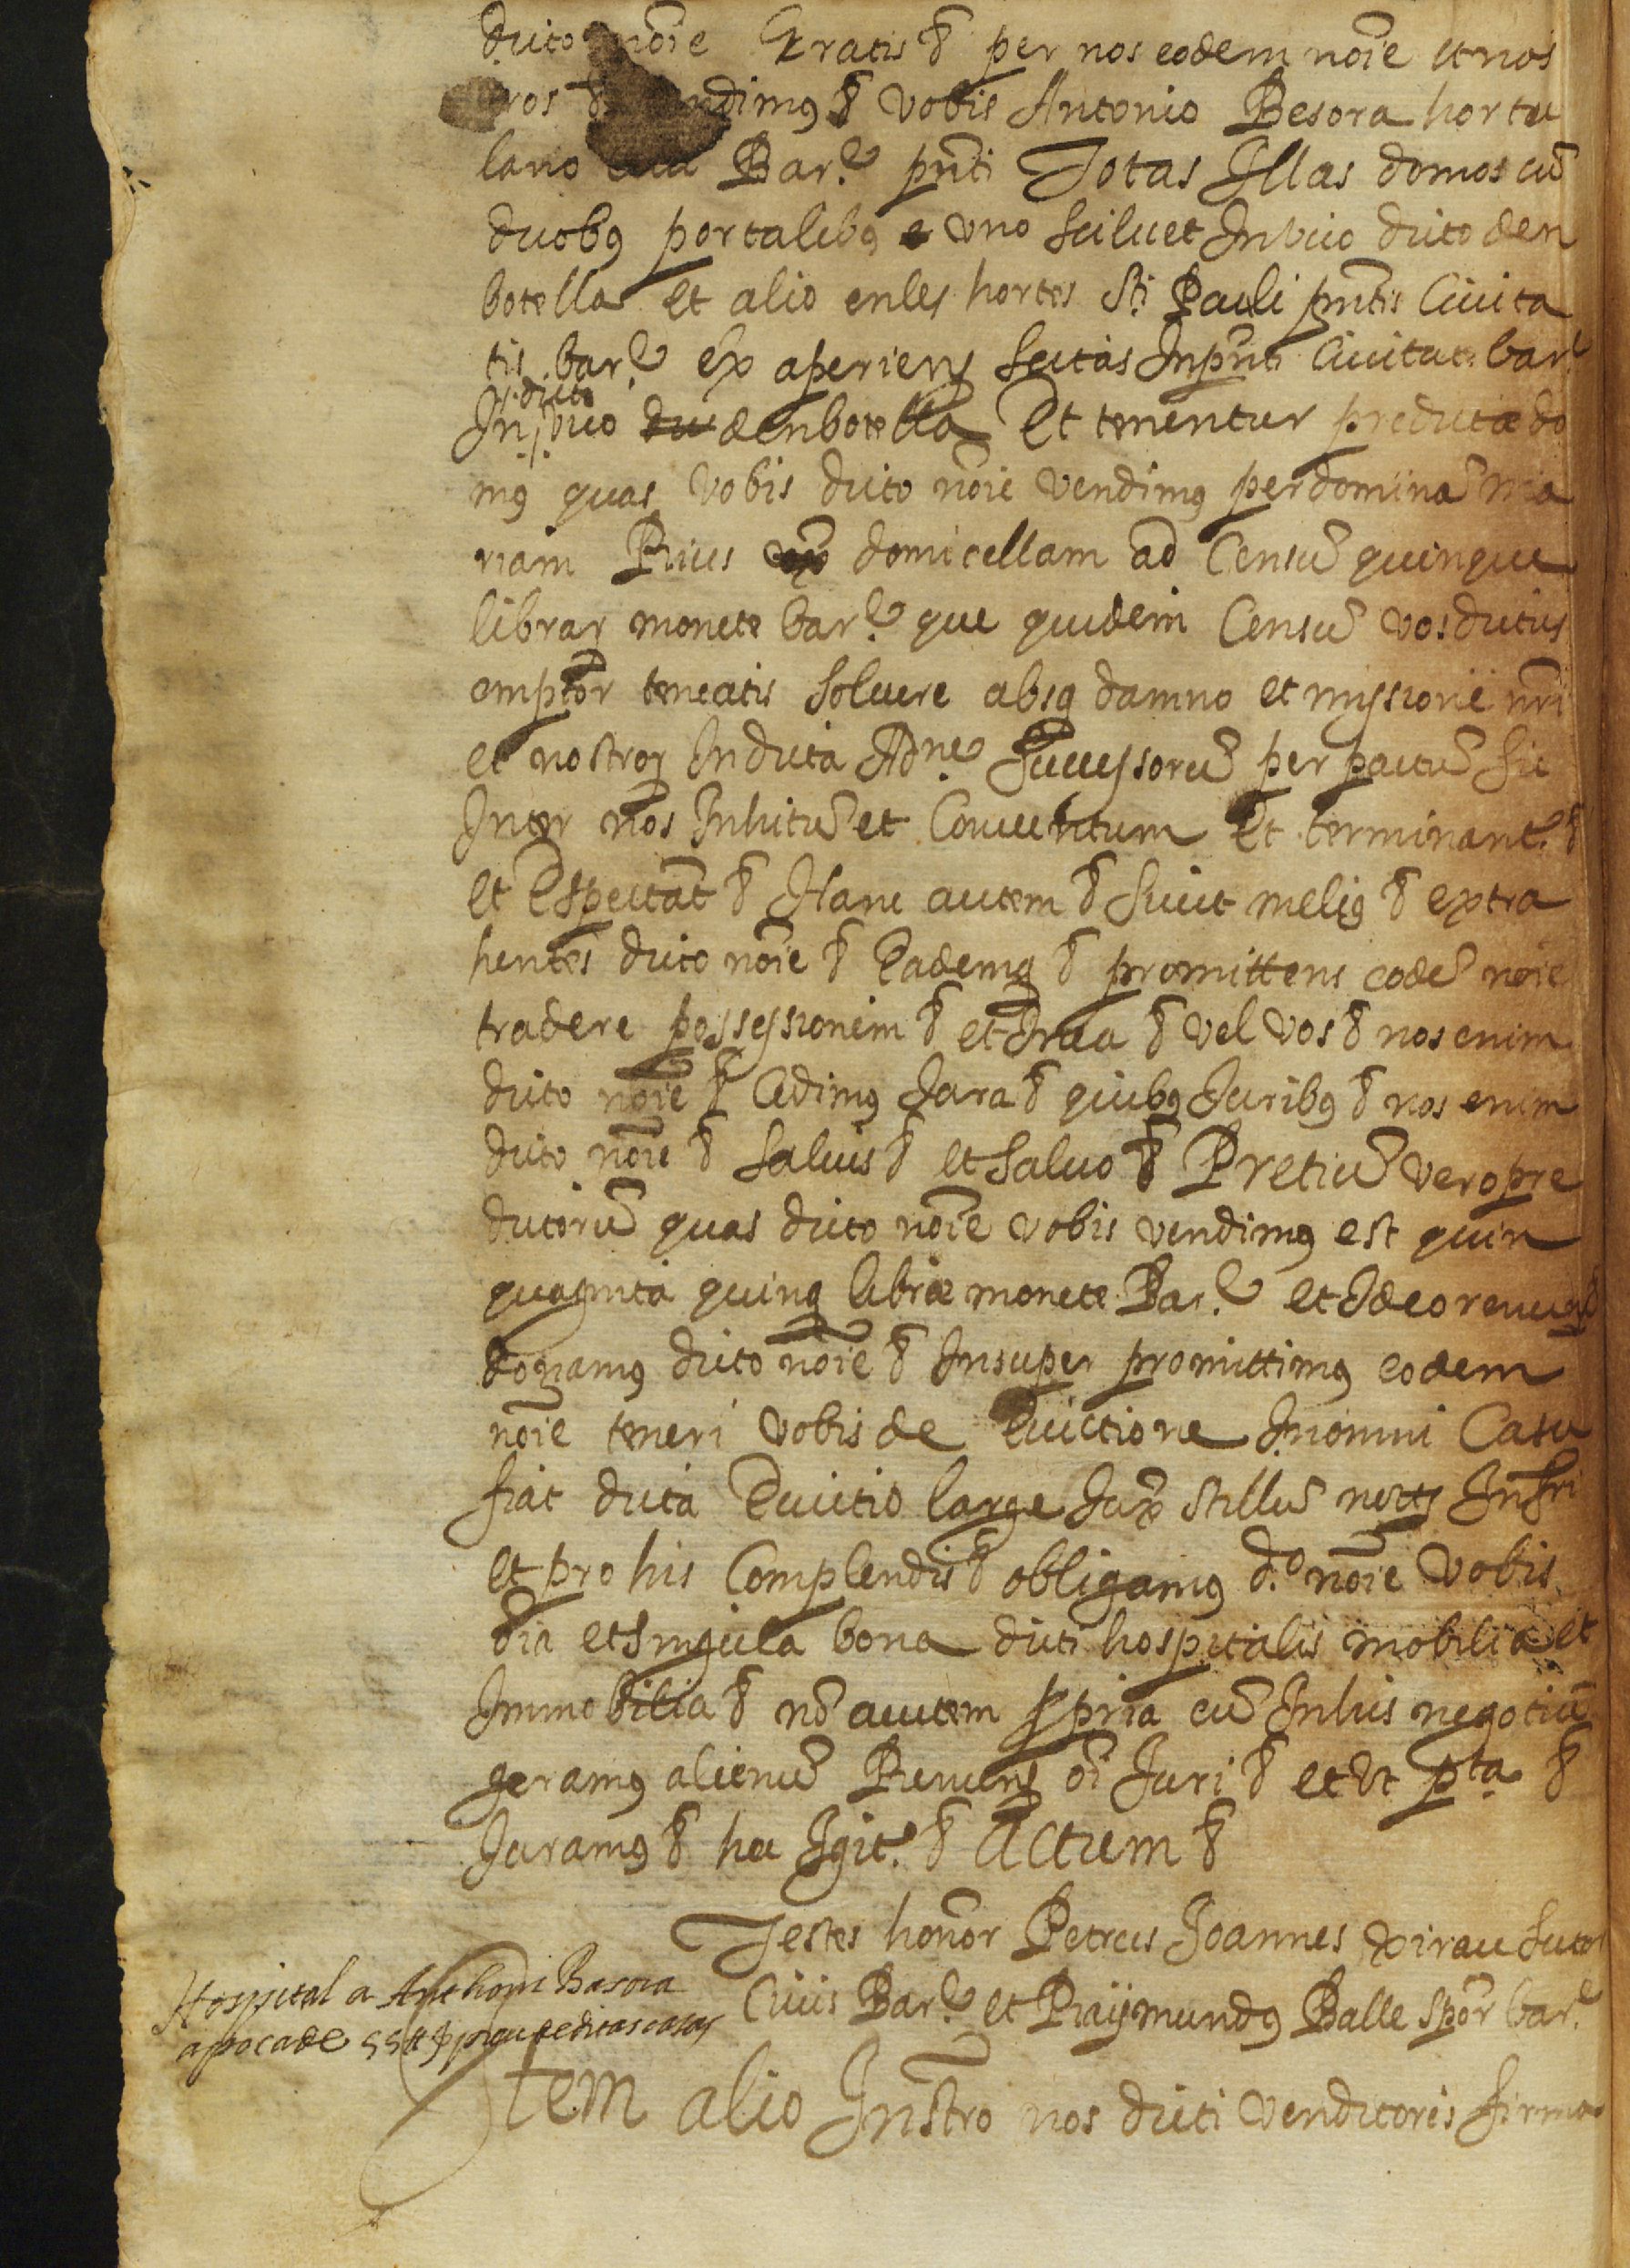 dicto nōie Gratis & per nos eodem nōie et nos
ros & vendimꝰ & vobis Antonio Besora hortu
lano Barᵉ pn̄ti Totas Illas domos cū
duobꝰ portalibꝰ uno scilicet In vico dicto den
botella et alio en les hortes Sti Pauli pn̄tis Civita
tis barᵉ ex aperiens scitas In pn̄ti Civitat. barᵉ
In dicto vico den botella Et tenentur predictæ do
mꝰ quas vobis dicto nōie vendimꝰ per dominā ma
riam Rius domicellam ad Censū quinque
librar monete barᵉ que quidem Censū vos dictus
emptor teneatis solvere absq damno et missione nr̄i
et nostror In dicta Adⁿᵉ Successorū per pactū sic
Inter nos Inhitū et Conventum Et terminant. &
et Espectāt & Hanc autem & sicut meliꝰ & extra
hentes dicto nōie & Eademq & promittens eodē nōie
tradere possessionem & et Irua & vel vos & nos enim
dicto nōie & Cedimꝰ Jura & quibꝰ Juribꝰ & nos enim
dicto nōie & salvis & et salvo & Pretiū vero pre
dictorū quas dicto nōie vobis vendimꝰ est quin
quaginta quinq libræ monete Barᵉ et Ideo renun
donamꝰ dicto nōie & Insuper promittimꝰ eodem
nōie teneri vobis de Evictione In omni Casu
fiat dicta Evictio large Jux̄ stillū nott Infr̄i
et pro his Complendis & obligamꝰ d.º nōie vobis
ōia et singula bona dicti hospitalis mobilia et
Immobilia & nō autem ꝓpria cū In his negotiū
geramꝰ alienū Renuns ōi Juri & et ut pᵗᵃ &
Juramꝰ & hec Igit. & Actum &
Testes honor Petrus Joannes Xirau sutor
Civis Barᵉ et Raymundꝰ Balle spōr barᵉ
Hospital a Anthoni Basora
apoca de 55 ₶ ꝑ preu de ditas casas
Item alio Instr̄o nos dicti venditores firma